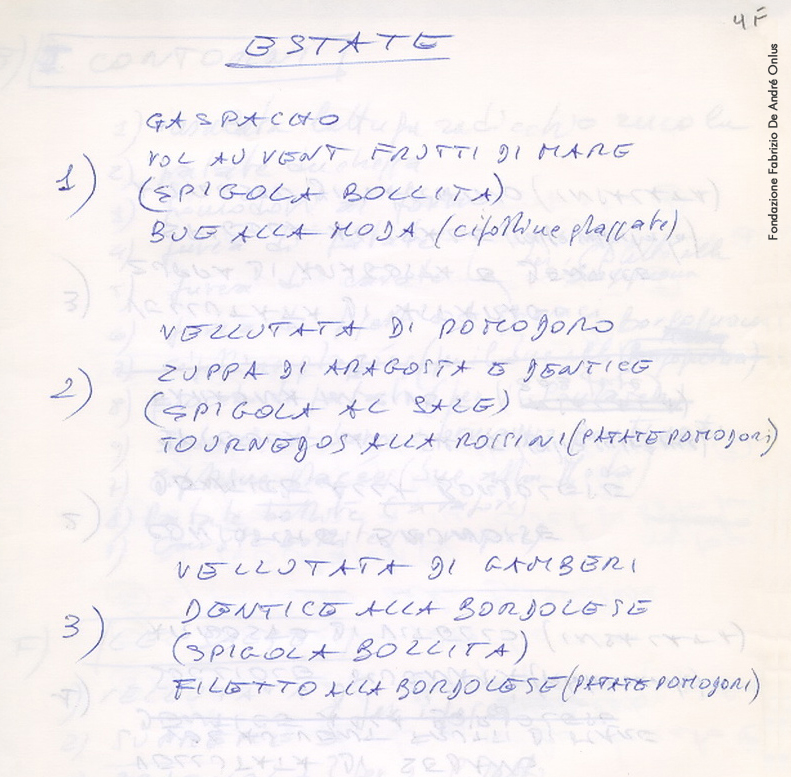 4F
ESTATE
GASPACHO
1) VOL AU VENT FRUTTI DI MARE
(SPIGOLA BOLLITA)
BUE ALLA MODA (cipolline glassate)
VELLUTATA DI POMODORO
2) ZUPPA DI ARAGOSTA E DENTICE
(SPIGOLA AL SALE)
TOURNEDOS ALLA ROSSINI (PATATE POMODORI)
VELLUTATA DI GAMBERI
3) DENTICE ALLA BORDOLESE
(SPIGOLA BOLLITA)
FILETTO ALLA BORDOLESE (PATATE POMODORI)
Fondazione Fabrizio De André Onlus